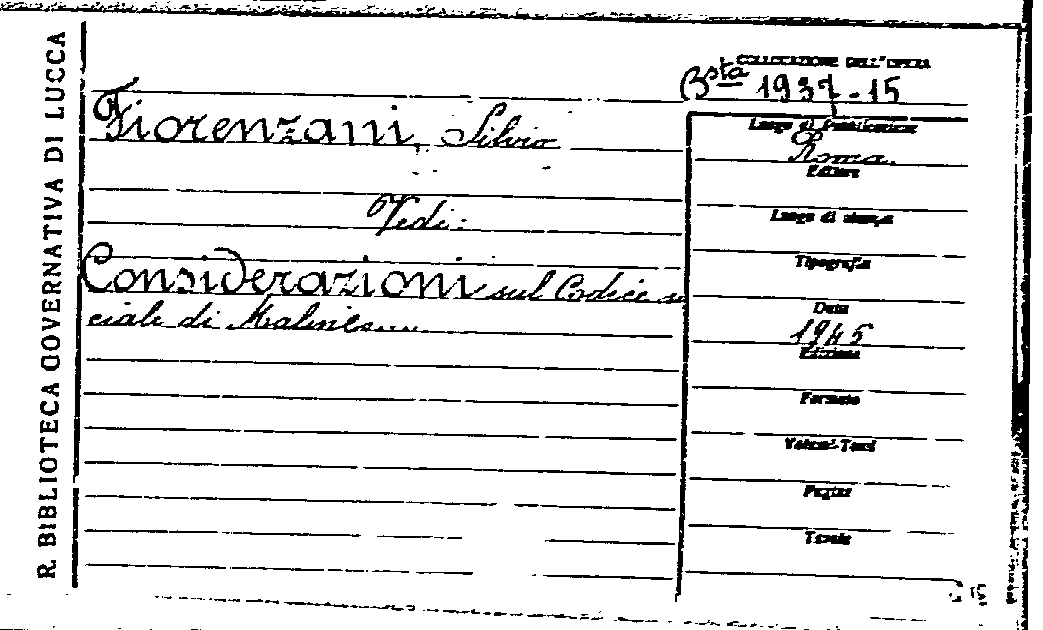 R. BIBLIOTECA GOVERNATIVA DI LUCCA
COLLOCAZIONE DELL'OPERA
Bsta 1937-15
Fiorenzani, Silvio
Vedi:
Considerazioni sul Codice so
ciale di Malines....
Luogo di Pubblicazione
Roma.
Editore
Luogo di stampa
Tipografia
Data
1945
Edizione
Formato
Volumi-Tomi
Pagine
Tavole